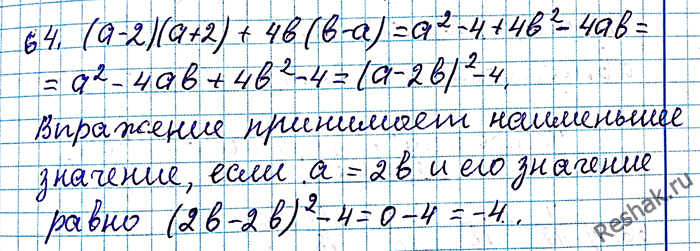 64. (а-2)(а+2) + 4в(в-а) = а² - 4 + 4в² - 4ав =
= а² - 4ав + 4в² - 4 = (а - 2в)² - 4.
Выражение принимает наименьшее
значение, если а = 2в и его значение
равно (2в - 2в)² - 4 = 0 - 4 = -4.
Reshak.ru